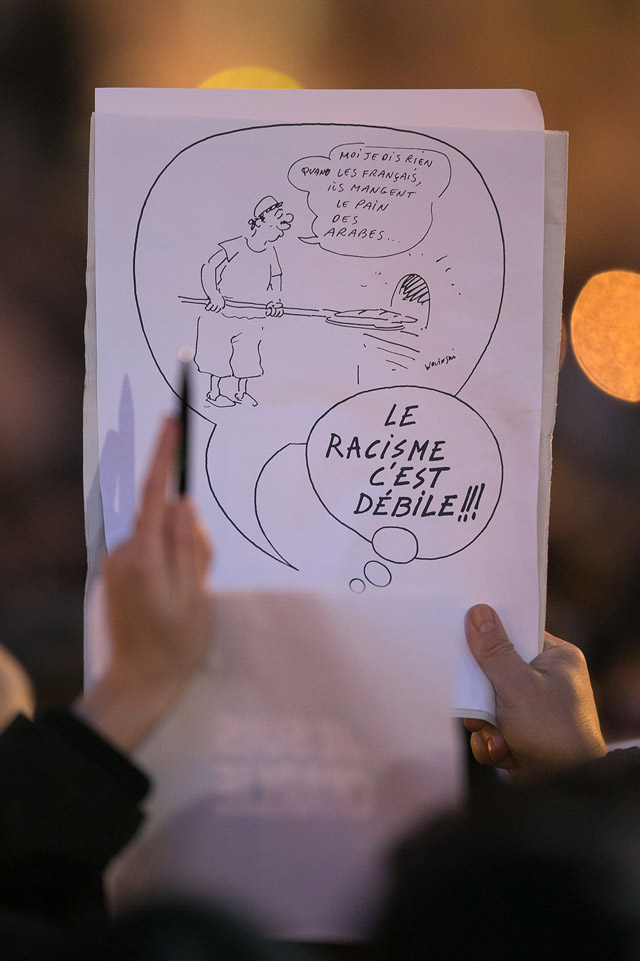 MOI JE DIS RIEN
QUAND LES FRANÇAIS,
ILS MANGENT
LE PAIN
DES
ARABES...
WOLINSKI
LE
RACISME
C'EST
DÉBILE!!!